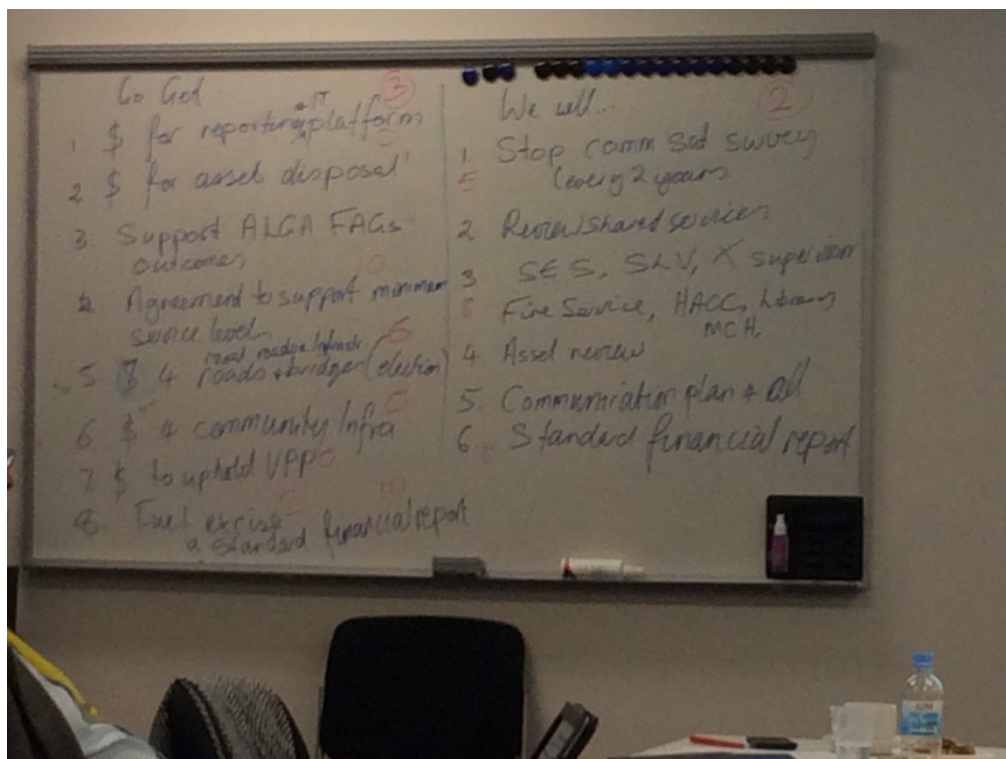 Go Get
3
1 $ for reporting + IT platform
2 $ for asset disposal
3 Support ALGA FAGs
outcomes
0
Agreement to support minimum
service levels
6
5 $ 4 roads + bridges (election)
0
6 $ 4 community Infra
7 $ to uphold
10
8 Fuel excise
a standard financial report
We will...
2
1 Stop comm sat survey
5
(every 2 years
2 Review shared services
3 SES, SLV, X supervisor
8
Fire Service, HACC, Library
MCH
4 Asset review
5. Communication plan 4 all
6. Standard financial report